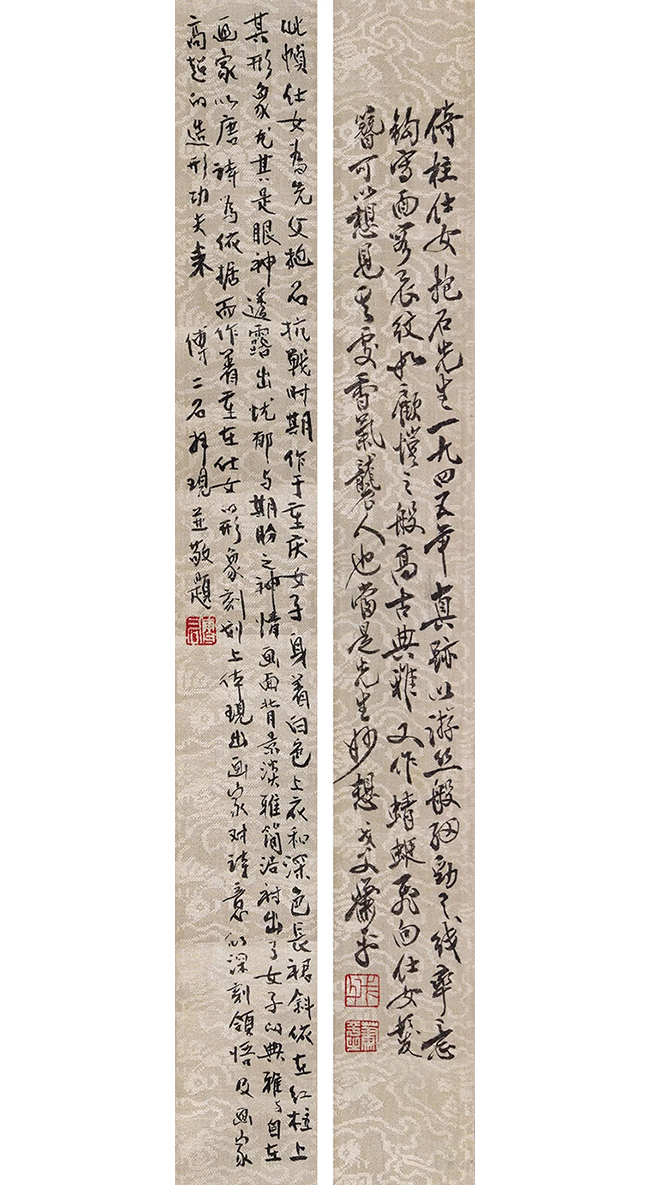 倚柱仕女抱石先生一九四五年真跡以游丝般细劲之线率意
鈎写面容衣纹如顧愷之般高古典雅又作蜻蜓飛向仕女鬓
簪可以想見其雲香氣襲人也當是先生妙想 蕭平
此幀仕女為先父抱石抗戰时期作于重庆女子身着白色上衣和深色長裙斜依在红柱上
其形象尤其是眼神透露出忧郁与期盼之神情画面背景淡雅简洁衬出了女子的典雅与自在
画家以唐詩為依据而作着重在仕女的形象刻划上体現出画家对詩意的深刻領悟及画家
高超的造形功夫来 傅二石拜观並敬題
傅二石